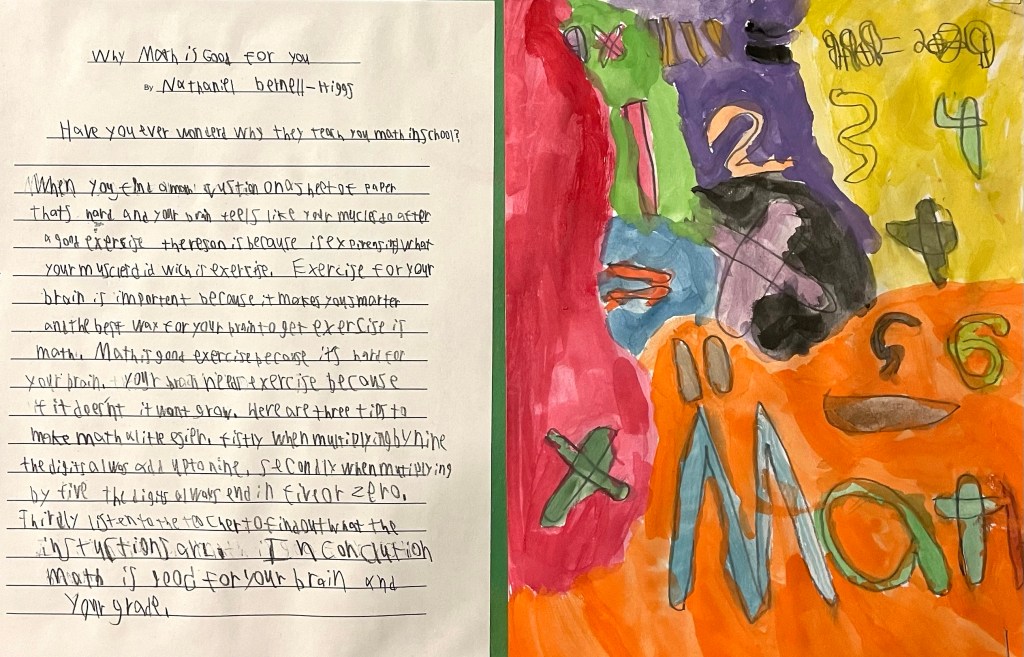 Why Math is Good for you
By Nathaniel bernell-Higgs
Have you ever wonderd why they teach you math in school?
When you find a math qustion on a sheet of paper
that's hard and your brain feels like your mucles do after
a good exercise thereson is because is expirensing what
your muscles did wich is exercise. Exercise for your
brain is importent because it makes you smarter
and the best wax for your brain to get exercise is
math. Math is good exercise because it's hard for
your brain. your brain needs exercise because
if it does'nt it wont grow. Here are three tips to
make math a litle esier. firstly when multiplying by nine
the digits always add up to nine. secondly when mutiplying
by five the digits always end in five or zero.
Thirdly listen to the to find out what the
instuctions are. In conclution
math is good for your brain and
your grade.
1 2 3 4
+
×
=
5 6
×
Math